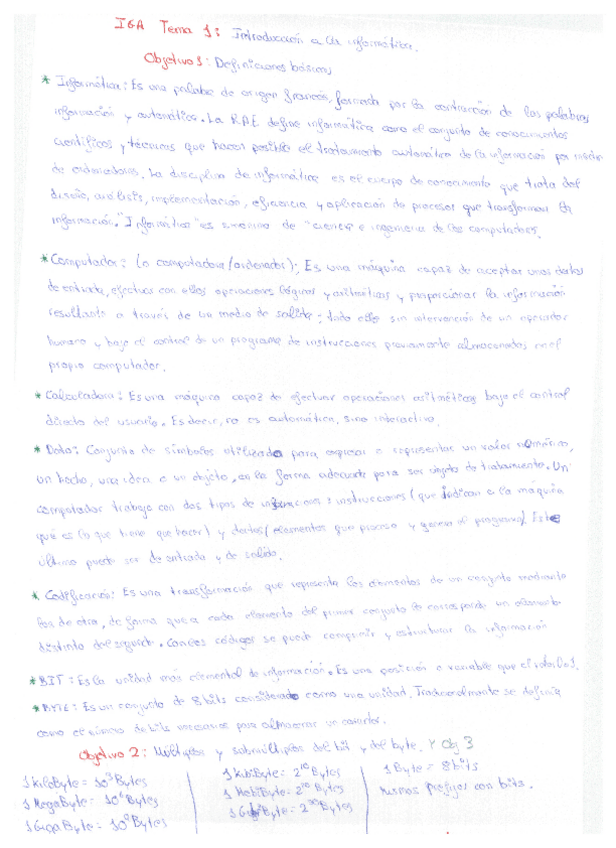 IGA Tema 1: Introducción a la informática.
Objetivo 1: Definiciones básicas
* Informática: Es una palabra de origen francés, formada por la contracción de las palabras
información y automática. La RAE define informática como el conjunto de conocimientos
científicos y técnicas que hacen posible el tratamiento automático de la información por medio
de ordenadores. La disciplina de informática es el cuerpo de conocimiento que trata del
diseño, análisis, implementación, eficiencia y aplicación de procesos que transforman la
información. "Informática" es sinónimo de "ciencia e ingeniería de los computadores.
* Computador: (o computadora/ordenador): Es una máquina capaz de aceptar unos datos
de entrada, efectuar con ellos operaciones lógicas y aritméticas y proporcionar la información
resultante a través de un medio de salida; todo ello sin intervención de un operador
humano y bajo el control de un programa de instrucciones previamente almacenado en el
propio computador.
* Calculadora: Es una máquina capaz de efectuar operaciones aritméticas bajo el control
directo del usuario. Es decir, no es automática, sino interactiva.
* Dato: Conjunto de símbolos utilizado para expresar o representar un valor numérico,
un hecho, una idea o un objeto, en la forma adecuada para ser objeto de tratamiento. Un
computador trabaja con dos tipos de informaciones: instrucciones (que indican a la máquina
qué es lo que tiene que hacer) y datos (elementos que procesa y genera el programa). Este
último puede ser de entrada y de salida.
* Codificación: Es una transformación que representa los elementos de un conjunto mediante
los de otro, de forma que a cada elemento del primer conjunto le corresponda un elemento
distinto del segundo. Con los códigos se puede comprimir y estructurar la información
* BIT: Es la unidad más elemental de información. Es una posición o variable que el valor 0 o 1.
* BYTE: Es un conjunto de 8 bits considerado como una unidad. Tradicionalmente se definía
como el número de bits necesarios para almacenar un caracter.
Objetivo 2: Múltiplos y submúltiplos del bit y del byte. Y Obj 3
1 KiloByte = 10³ Bytes
1 MegaByte = 10⁶ Bytes
1 GigaByte = 10⁹ Bytes
1 KibiByte: 2¹⁰ Bytes
1 MebiByte: 2²⁰ Bytes
1 GibiByte: 2³⁰ Bytes
1 Byte = 8 bits
mismos prefijos con bits.